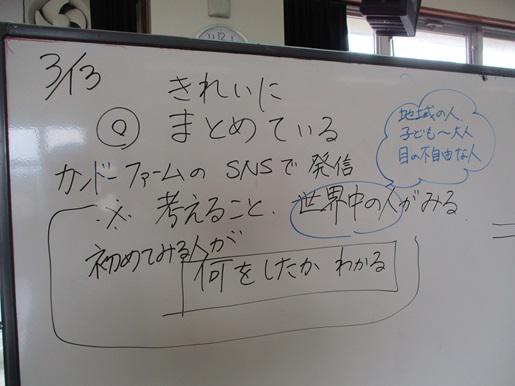 3/13
きれいに
◎ まとめている
カンドーファームの SNSで 発信
※ 考えること. 世界中の人がみる
初めてみる人が
何をしたか わかる
地域の人
子ども〜大人
目の不自由な人